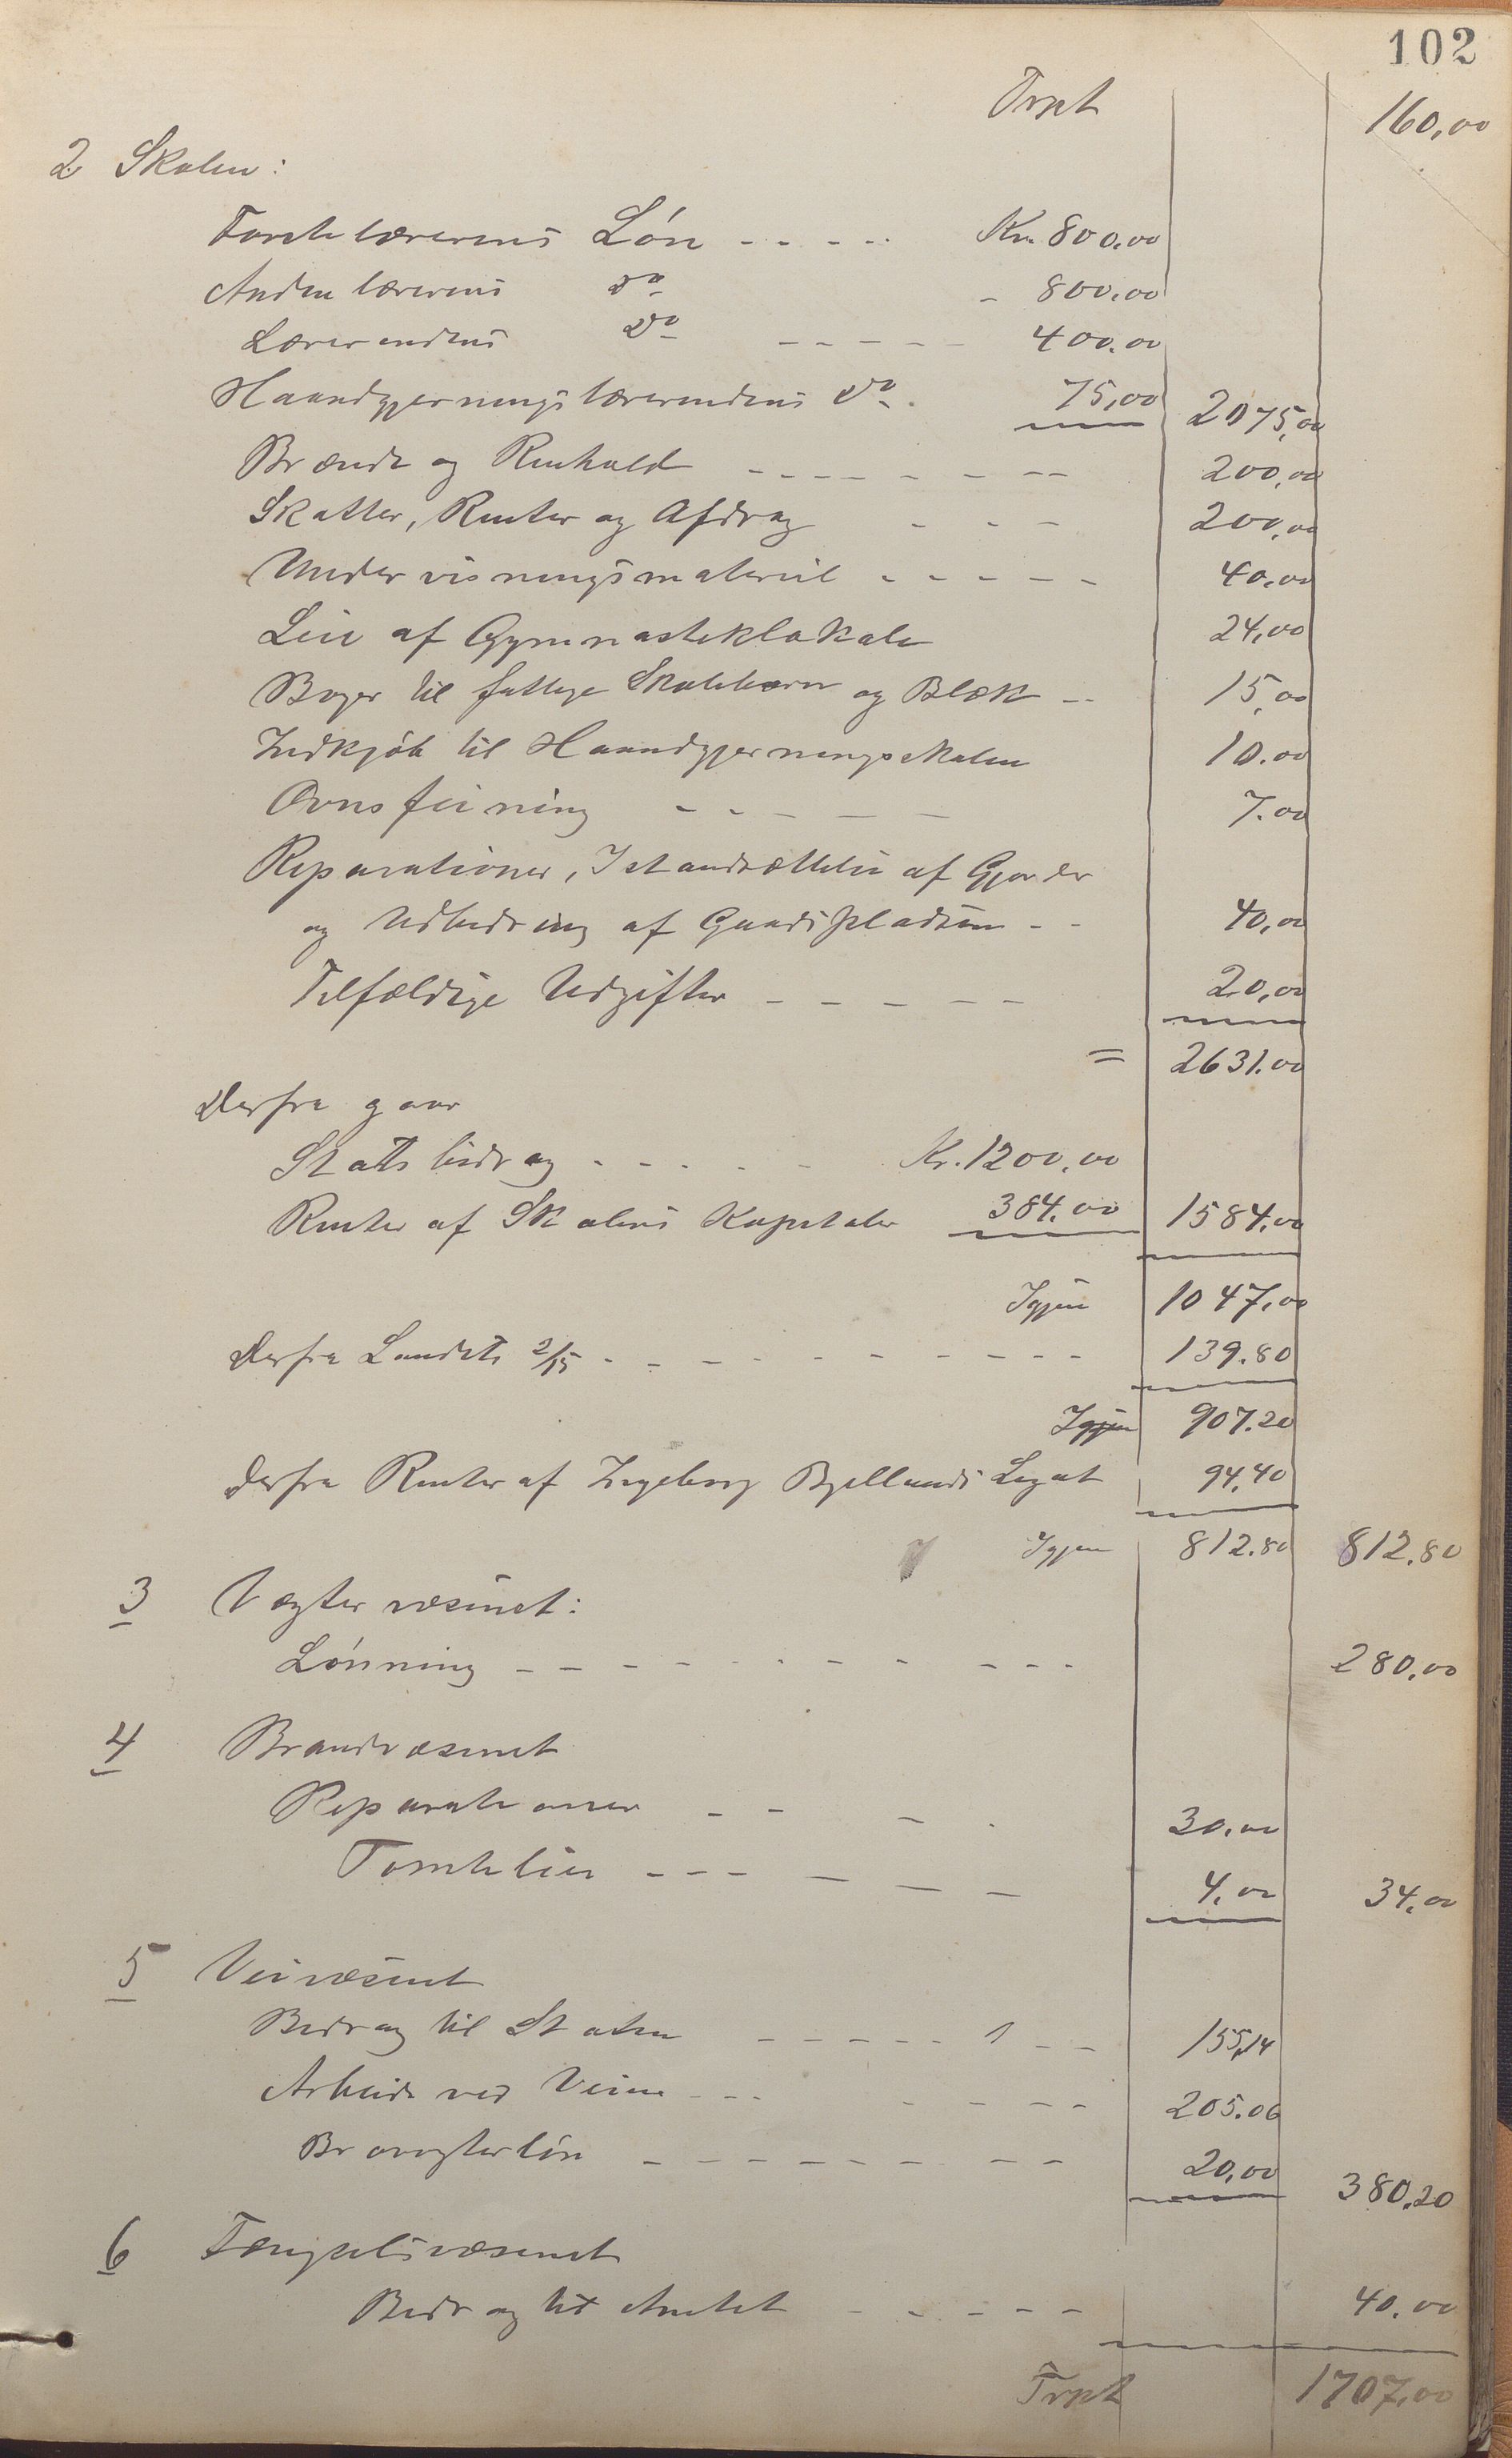 102
Trspt 160,00
2 Skolen:
Førstelærerens Løn - - - - - Kr. 800.00
Andenlærerens Do - 800.00
Lærerindens Do - - - - - 400.00
Haandgjerningslærerindens Do 75,00 2075,00
Brænde og Renhold - - - - - - - - 200,00
Skatter, Renter og Afdrag - - - 200,00
Undervisningsmateriel - - - - - 40,00
Leie af Gymnastiklokale 24,00
Bøger til fattige Skolebørn og Blæk - - 15,00
Indkjøb til Haandgjerningsskolen 10.00
Ovnsfeining - - - - - - 7.00
Reparationer, Istandsættelse af Gjerder
og Udbedring af Gaardspladsen - - 40,00
Tilfældige Udgifter - - - - - 20,00
= 2631.00
Derfra gaar
Statsbidrag - - - - - Kr. 1200,00
Renter af Skolens Kapitaler 384.00 1584,00
Igjen 1047,00
Derfra Landets 2/15 - - - - - - - - - - 139.80
Igjen 907.20
Derfra Renter af Ingeborg Bjellands Legat 94,40
Igjen 812.80 812.80
3 Vægtervæsenet:
Lønning - - - - - - - - - - - 280,00
4 Brandvæsenet
Reparationer - - - - 30,00
Tomteleie - - - - - - 4,00 34,00
5 Veivæsenet
Bidrag til Staten - - - - - 1 - - 155,14
Arbeide ved Veiene - - - - - - - - 205.06
Brovogterløn - - - - - - - - 20,00 380.20
6 Fængselsvæsenet
Bidrag til Amtet - - - - - 40.00
Trspt 1707,00